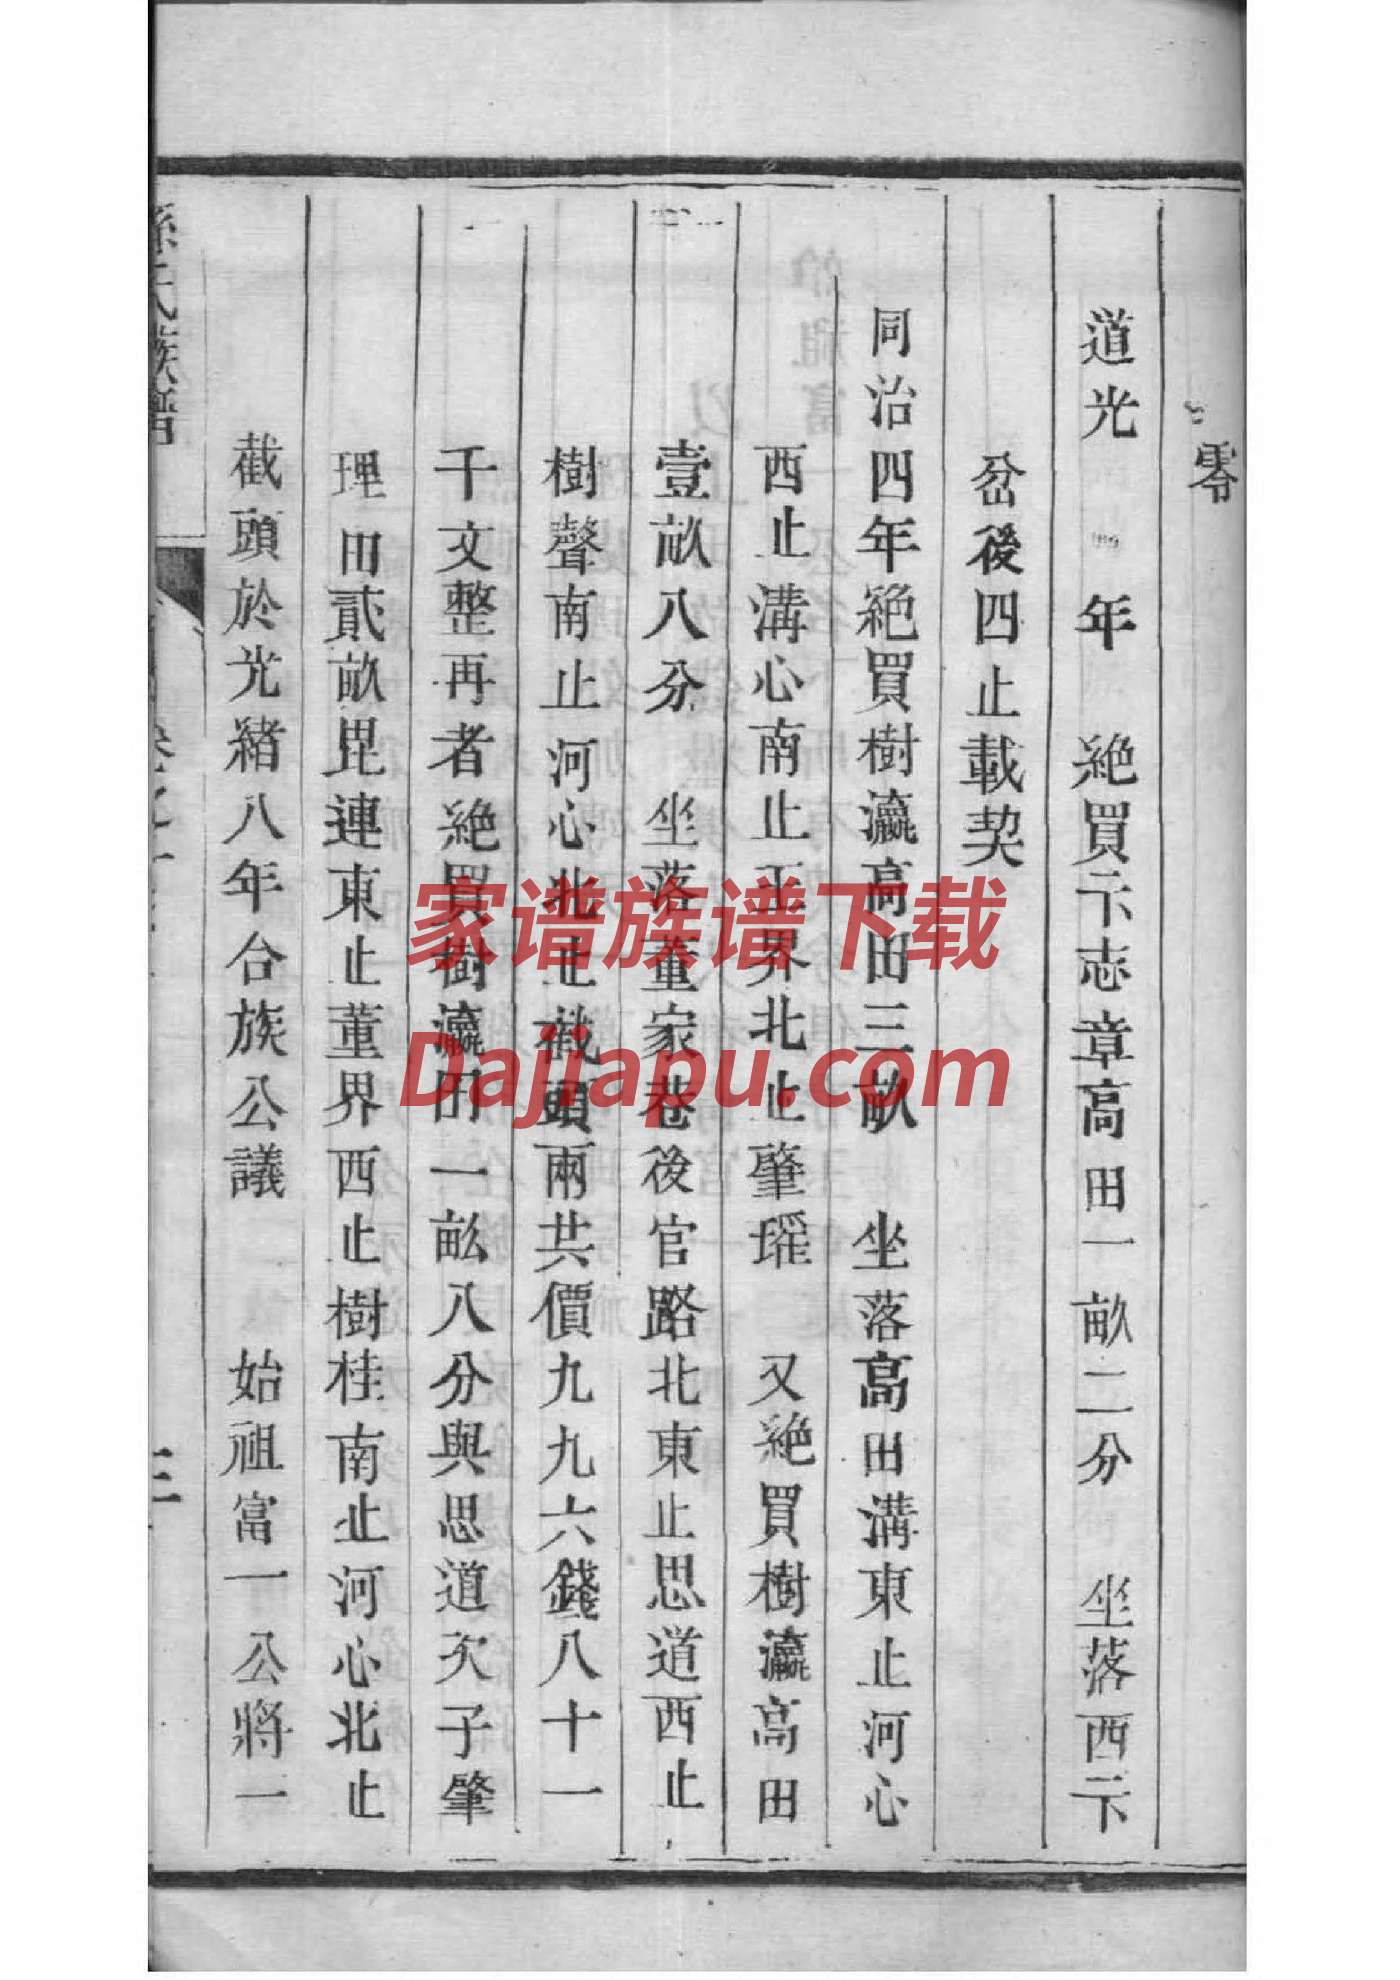 零
道光　年　絶買卞志章高田一畝二分　坐落西卞
岔後四止載契
同治四年絕買樹瀛高田三畝　坐落高田溝東止河心
西止溝心南止王界北止肇瑶　又絕買樹瀛高田
壹畝八分　坐落董家巷後官路北東止思道西止
樹聲南止河心北止截頭兩共價九九六錢八十一
千文整再者絕買樹瀛田一畝八分與思道次子肇
理田貳畝毘連東止董界西止樹桂南止河心北止
截頭於光緒八年台族公議　始祖富一公將一
孫氏族譜
三
家谱族谱下载
Dajiapu.com